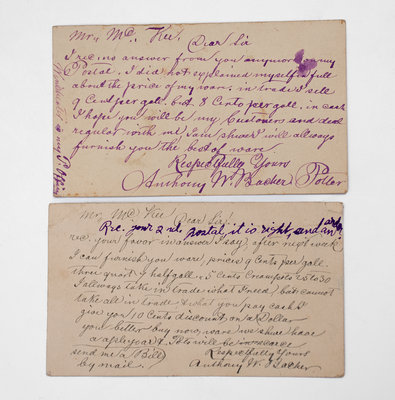 Mr, Mc, Kee, Dear Sir
I rec no answer from you anymore on my
Postal. I did not explained myself full
about the price of my ware. in trade I sell
9 Cent per gall. but 8 Cents per gall. in cash
I hope you will be my Customer and deal
regular with me. I am shure I will allways
furnish you the best of ware.
Respectfully Yours
Anthony W. Bacher Potter
is my P. Office
Mr, Mc Kee Dear Sir!
Rec. your 2 nt. postal, it is right, and an
rec. your favor in answer I say, after night week
I can furnish you ware, price 9 Cents per gall.
three quart & half gall. 5 Cents to 30
I allways take in trade what I need, but cannot
take all in trade & what you pay cash I
give you 10 Cents discount on a Dollar
you better buy now, ware we shure have
a apple year & Pots will be scarce
send me a Bill
by mail.
Respectfully Yours
Anthony W. Bacher